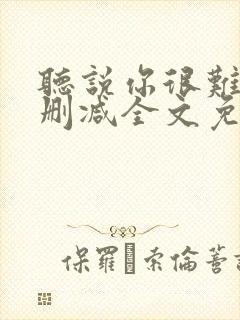 聽說你很難
刪減全文免
保羅·索倫蒂